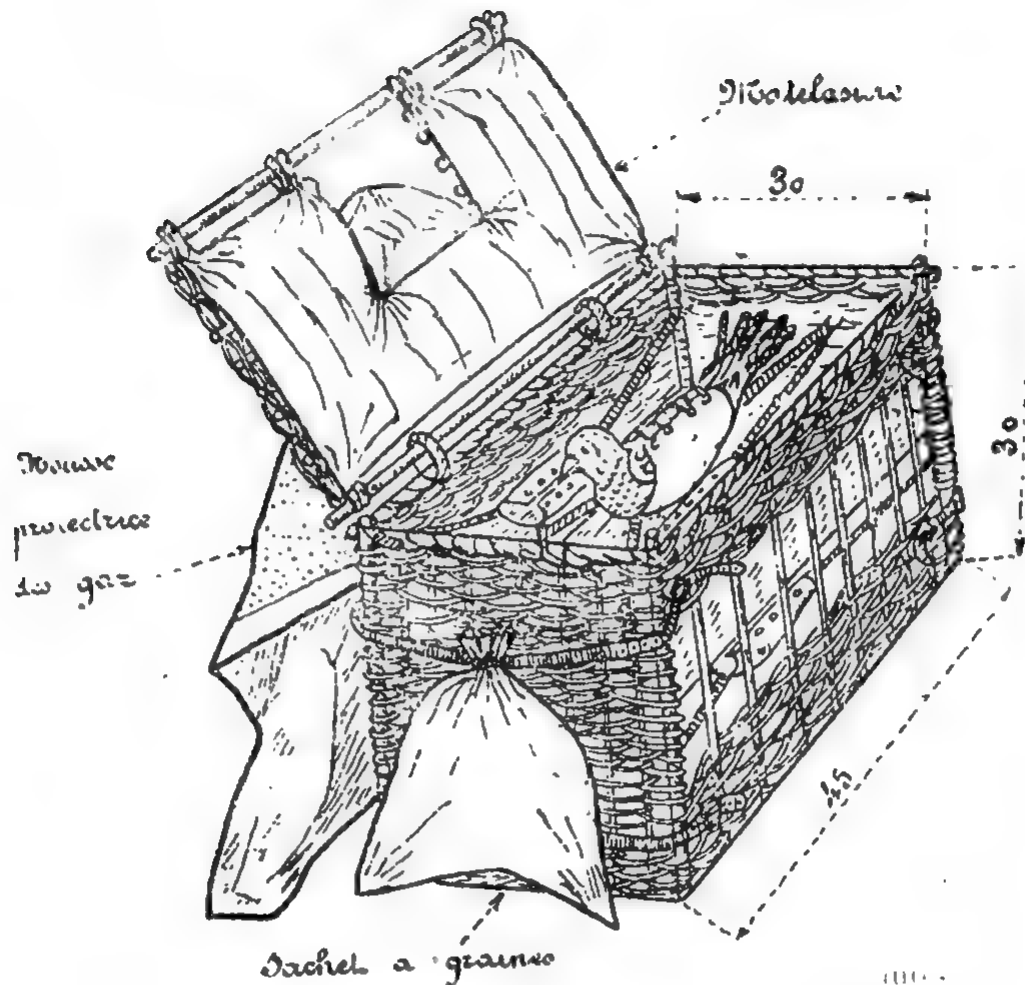 Matelassure
30
30
Housse
protectrice
du gaz
45
Sachet a graines